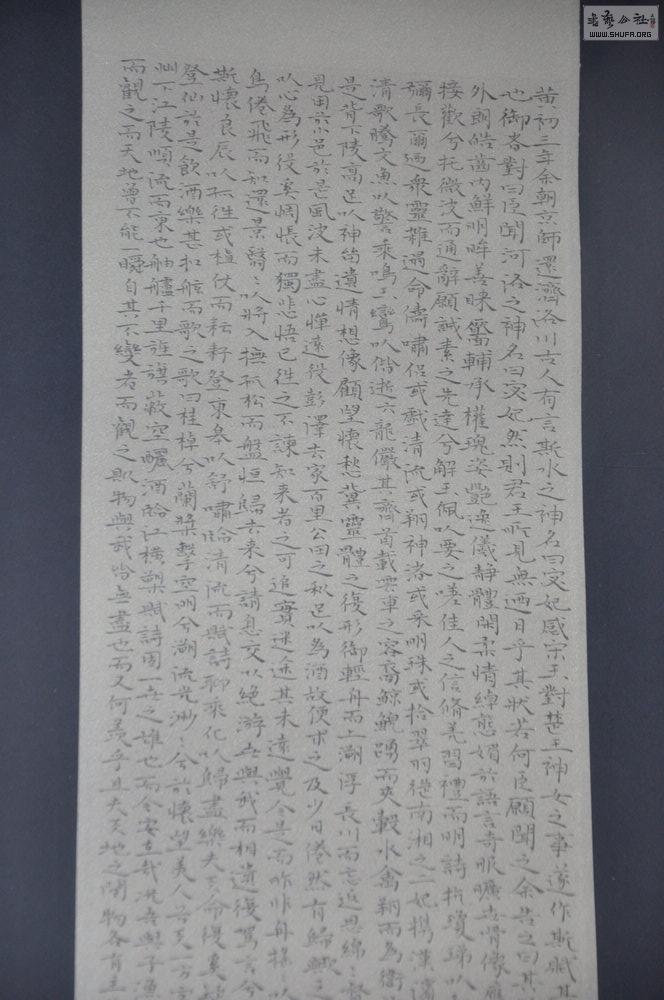 黄初三年余朝京师還濟洛川古人有言斯水之神名曰宓妃感宋玉對楚王神女之事遂作斯賦其
也御者對曰臣聞河洛之神名曰宓妃然則君王所見無迺日乎其狀若何臣願聞之余告之曰其
外朗皓齒内鮮明眸善睞靨輔承權瑰姿艷逸儀静體閑柔情綽態媚於語言奇服曠世骨像應
接歡兮托微波而通辭願誠素之先達兮解玉佩以要之嗟佳人之信修羌習禮而明詩抗瓊珶以
彌長爾迺衆靈雜遝命儔嘯侣或戲清流或翔神渚或采明珠或拾翠羽從南湘之二妃携漢濱
清歌騰文魚以警乘鳴玉鸞以偕逝六龍儼其齊首載雲車之容裔鯨鯢踴而夾轂水禽翔而為衛
是背下陵高足以神留遺情想像顧望懷愁冀靈體之復形御輕舟而上溯浮長川而忘返思綿〻督
見用於小邑於是風波未盡心憚遠役彭澤去家百里公田之秫足以為酒故便求之及少日倦然有歸歟之
以心為形役奚惆悵而獨悲悟已往之不諫知来者之可追實迷途其未遠覺今是而昨非舟摇以
鳥倦飛而知還景翳〻以將入撫孤松而盤恒歸去来兮請息交以绝游世與我而相遺復駕言兮
斯懷良辰以孤往或植杖而耘耔登東皋以舒嘯臨清流而賦詩聊乘化以歸盡樂夫天命復奚疑
登仙於是飲酒樂甚扣舷而歌之歌曰桂棹兮蘭槳擊空明兮溯流光渺〻兮於懷望美人兮天一方客
州下江陵順流而東也舳艫千里旌旗蔽空釃酒臨江横槊賦詩固一世之雄也而今安在哉况吾與子漁
而觀之而天地曾不能一瞬自其不變者而觀之則物與我皆無盡也而又何羡乎且夫天地之間物各有主
WWW.SHUFA.ORG